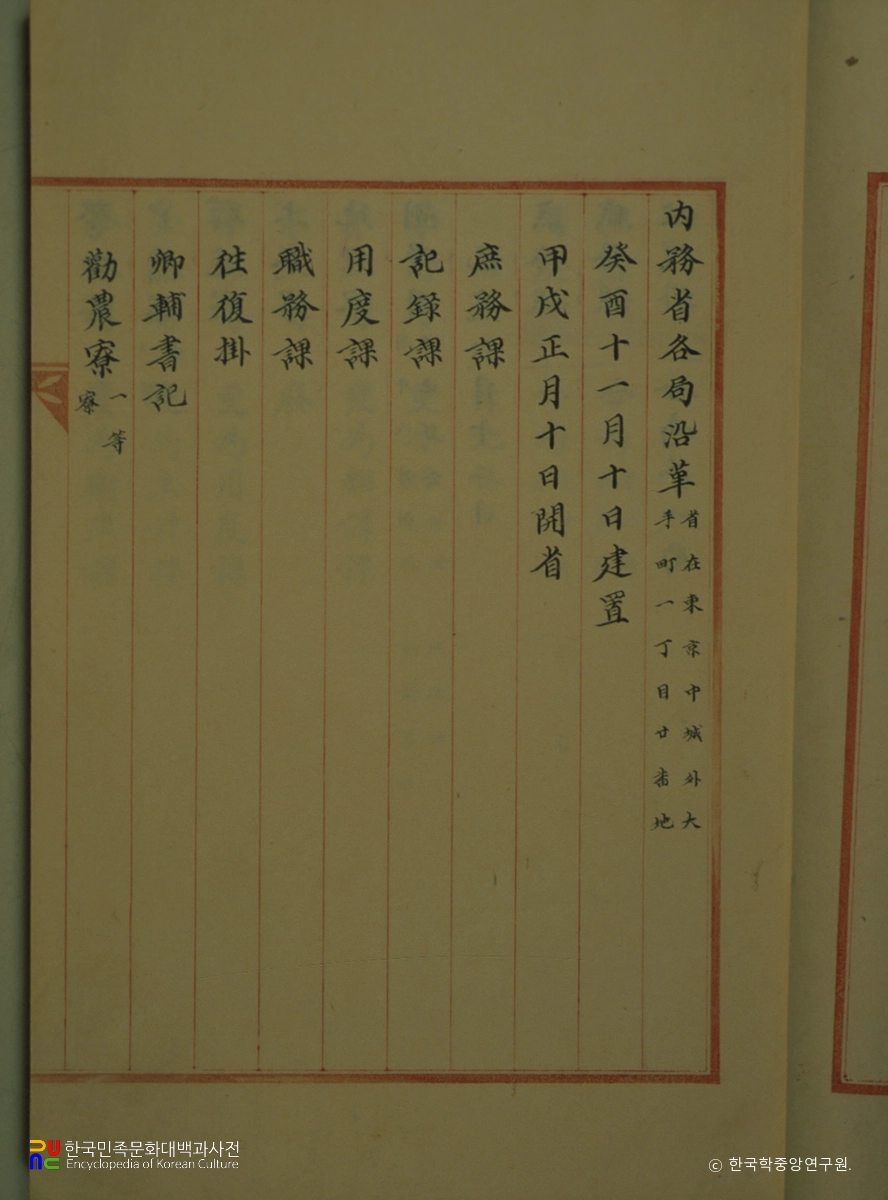 内務省各局沿革 省在東京中城外大手町一丁目廿畨地
癸酉十一月十日建置
甲戌正月十日開省
庶務課
記録課
用度課
職務課
往復掛
卿輔書記
勸農寮 一等寮
한국민족문화대백과사전
Encyclopedia of Korean Culture
© 한국학중앙연구원.